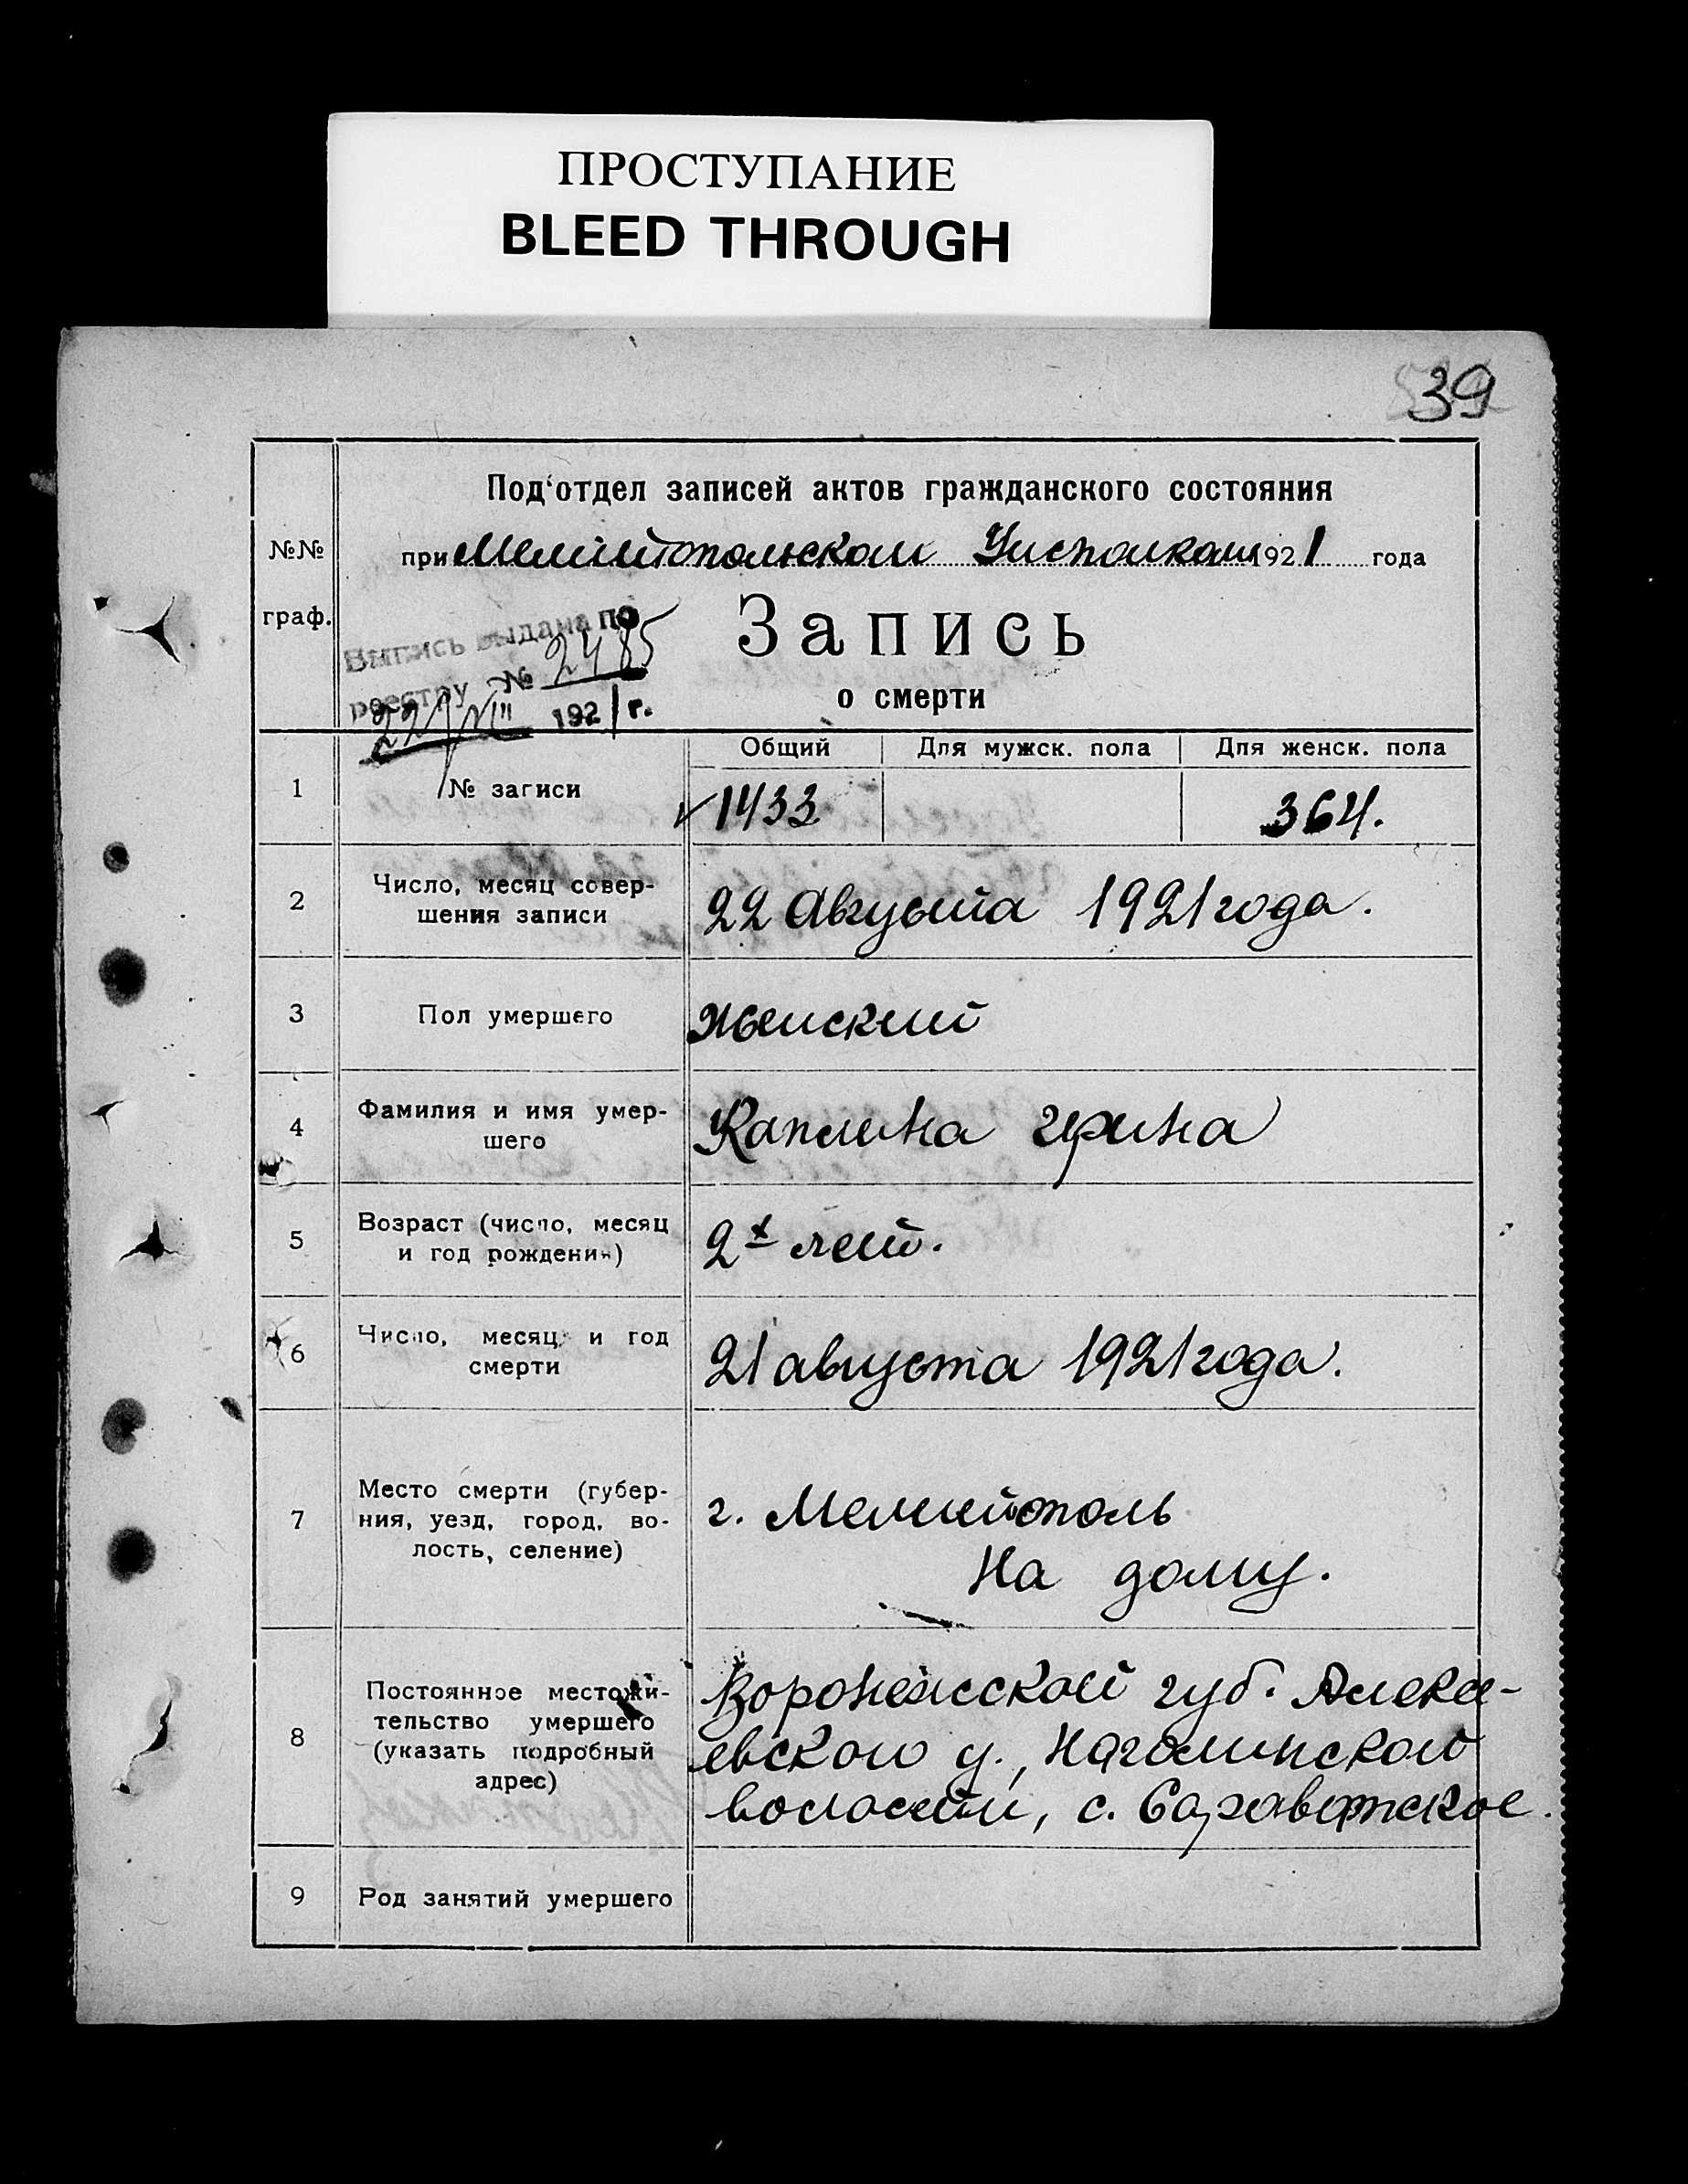 ПРОСТУПАНИЕ
BLEED THROUGH
39
Под'отдел записей актов гражданского состояния
№№ граф.
при Мелитопольском Уисполкоми 1921 года
Выпись выдана по
реестру № 2485
22/VIII 1921 г.
Запись
о смерти
Общий Для мужск. пола Для женск. пола
1 № записи 1433 364.
2 Число, месяц совер-
шения записи
22 Августа 1921 года.
3 Пол умершего Женский
4 Фамилия и имя умер-
шего
Каплина Ирина
5 Возраст (число, месяц
и год рождения)
2х лет.
6 Число, месяц и год
смерти
21 августа 1921 года.
7 Место смерти (губер-
ния, уезд, город, во-
лость, селение)
г. Мелитополь
На дому.
8 Постоянное местожи-
тельство умершего
(указать подробный
адрес)
Воронежской губ. Алексе-
евского у.,
волости, с.
9 Род занятий умершего